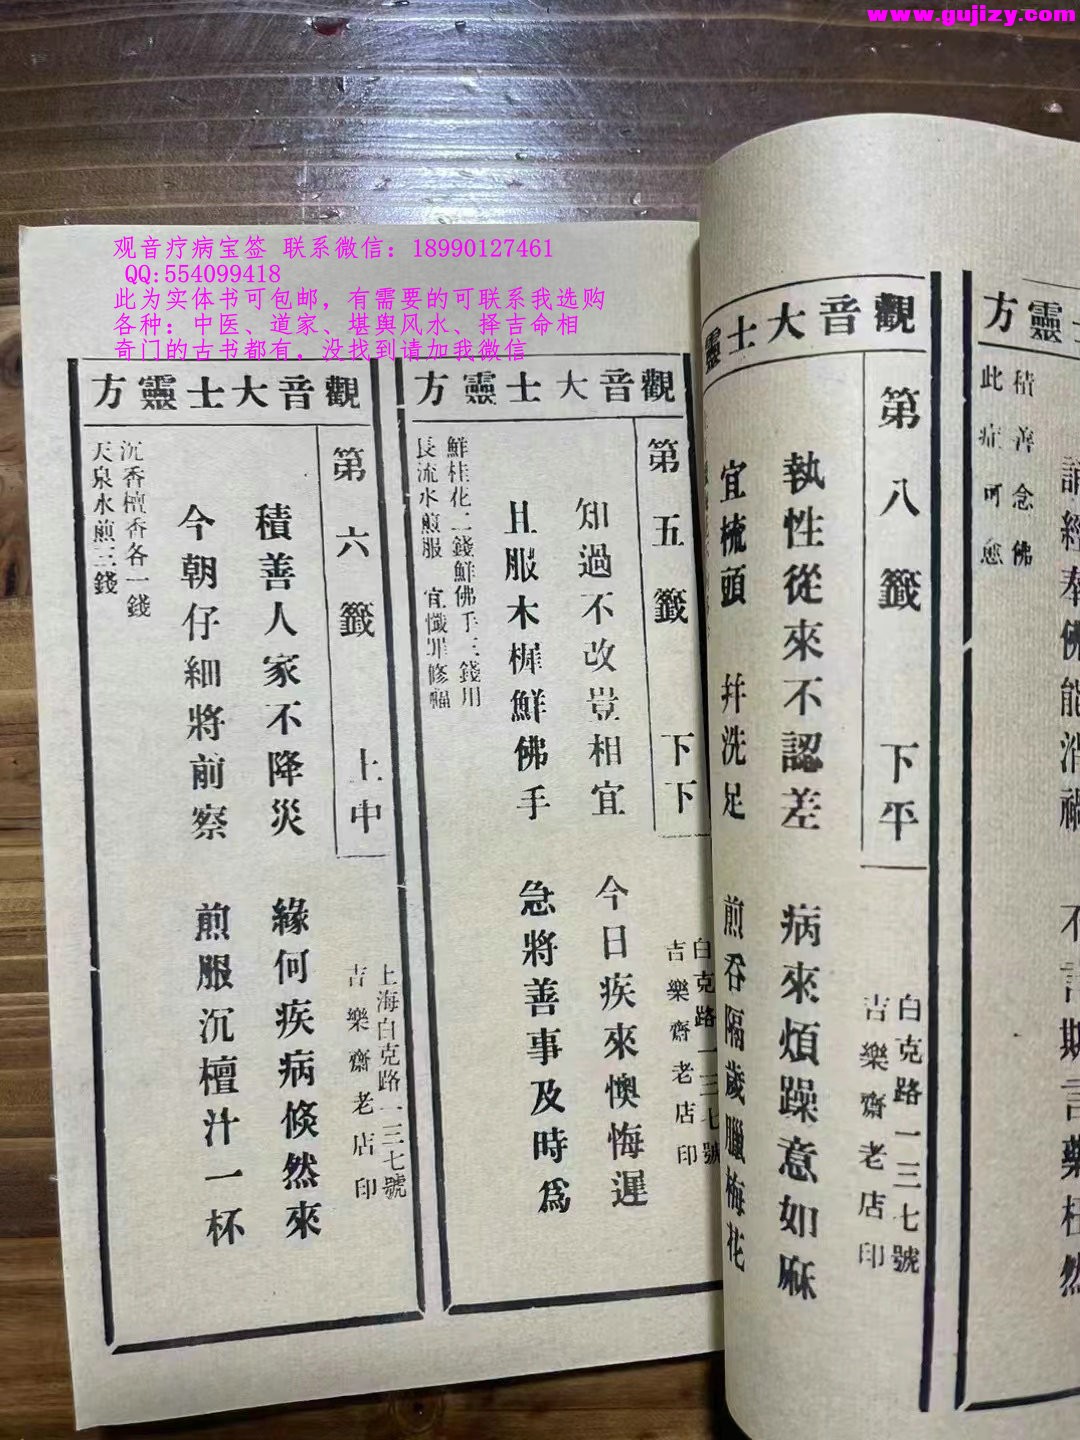 www.gujizy.com
观音疗病宝签 联系微信：18990127461
QQ:554099418
此为实体书可包邮，有需要的可联系我选购
各种：中医、道家、堪舆风水、择吉命相
奇门的古书都有，没找到请加我微信
積善念佛
此症可愈
觀音大士靈
第八籤 下平
白克路一三七號
吉樂齋老店印
執性從來不認差 病來煩躁意如麻
宜梳頭 幷洗足 煎吞隔歲臘梅花
觀音大士靈方
第五籤 下下
白克路一三七號
吉樂齋老店印
知過不改豈相宜 今日疾來懊悔遲
且服木樨鮮佛手 急將善事及時爲
鮮桂花二錢鮮佛手三錢用
長流水煎服 宜懺罪修福
觀音大士靈方
第六籤 上中
上海白克路一三七號
吉樂齋老店印
積善人家不降災 緣何疾病倏然來
今朝仔細將前察 煎服沉檀汁一杯
沉香檀香各一錢
天泉水煎三錢